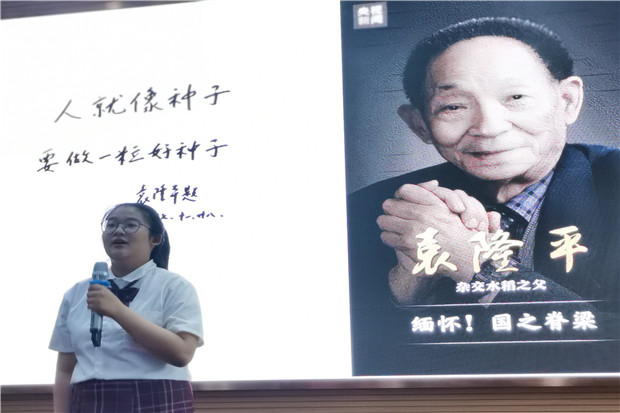 人就像种子
要做一粒好种子
袁隆平题
袁隆平
杂交水稻之父
缅怀！国之脊梁